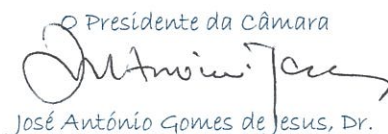 O Presidente da Câmara
José António Gomes de Jesus, Dr.